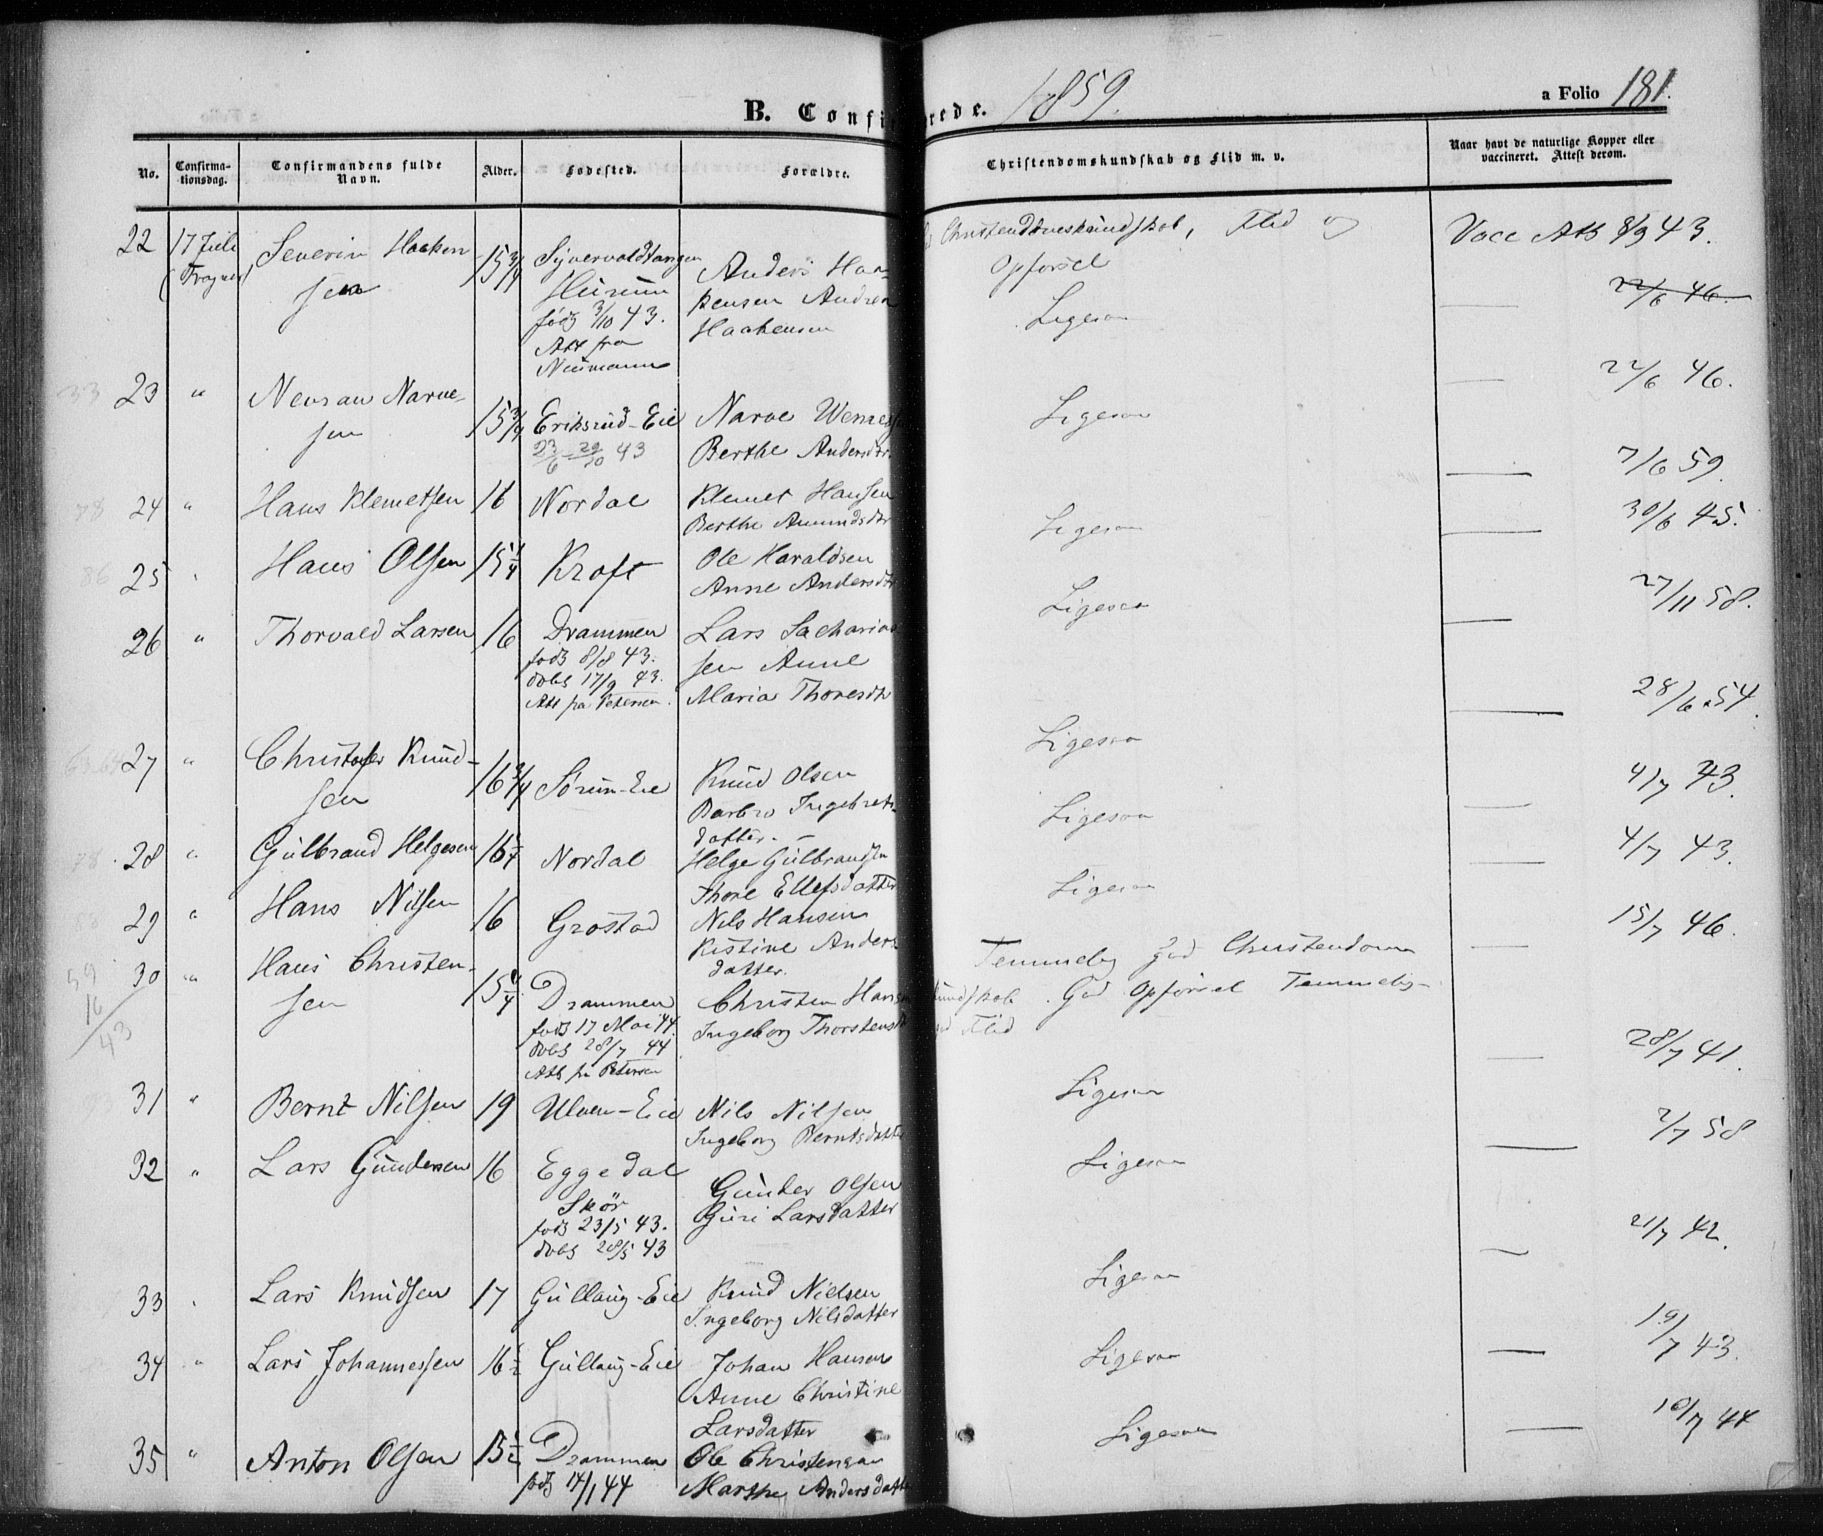 B. Confirmerede. 1859. a Folio 181.
No. Confirmationsdag. Confirmandens fulde Navn. Alder. Fødested. Forældre. Christendomskundskab og Flid m. v. Naar havt de naturlige Kopper eller vaccineret. Attest derom.
22 17 Juli (Frogner) Severin Haakensen 15 3/4 Hurum født 3/10 43. Att fra Neumann Anders Haakensen Andrea Haakensen Christendomskundskab, Flid og Opførsel Vacc Att 8/9 43.
Ligesaa — 22/6 46.
23 " Narvesen 15 3/4 Eriksrud-Eie 23/6 - 29/10 43 Narve Berthe Andersdtr Ligesaa — 22/6 46.
24 " Hans Klemetsen 16 Nordal Klemet Hansen Berthe Amundsdtr Ligesaa — 7/6 59.
25 " Hans Olsen 15 1/4 Kroft Ole Haraldsen Anne Andersdtr Ligesaa — 30/6 45.
26 " Thorvald Larsen 16 Drammen født 8/8 43. døbt 17/9 43. Att fra Petersen. Lars Sachariassen Anne Maria Thoresdtr Ligesaa — 27/11 58.
27 " Christofer Knudsen 16 3/4 Sørum-Eie Knud Olsen Barbro Ingebretsdatter. Ligesaa — 28/6 54
28 " Gulbrand Helgesen Nordal Helge Gulbrandsen Thore Ellefsdatter Ligesaa — 4/7 43.
29 " Hans Nilsen 16 Grostad Nils Hansen Kistine Andersdatter. Ligesaa — 4/7 43.
30 " Hans Christensen 15 1/4 Drammen født 17 Mai 44. døbt 28/7 44 Att fra Petersen Christen Hansen Ingeborg Thorstensdtr Temmelig god Christendomskundskab. God Opførsel Temmelig god Flid — 15/7 46.
31 " Bernt Nilsen 19 Ulven-Eie Nils Nilsen Ingeborg Berntsdatter Ligesaa — 28/7 41.
32 " Lars Gundersen 16 Eggedal Skör født 23/5 43. døbt 28/5 43 Gunder Olsen Guri Larsdatter Ligesaa — 2/7 58
33 " Lars Knudsen 17 Gullaug-Eie Knud Nielsen Ingeborg Nilsdatter Ligesaa — 21/7 42.
34 " Lars Johannessen 16 1/2 Gullaug-Eie Johan Hansen Anne Christine Larsdatter Ligesaa — 19/7 43.
35 " Anton Olsen 15 1/2 Drammen født 14/1 44 Ole Christensen Marthe Andersdatter Ligesaa — 10/7 44